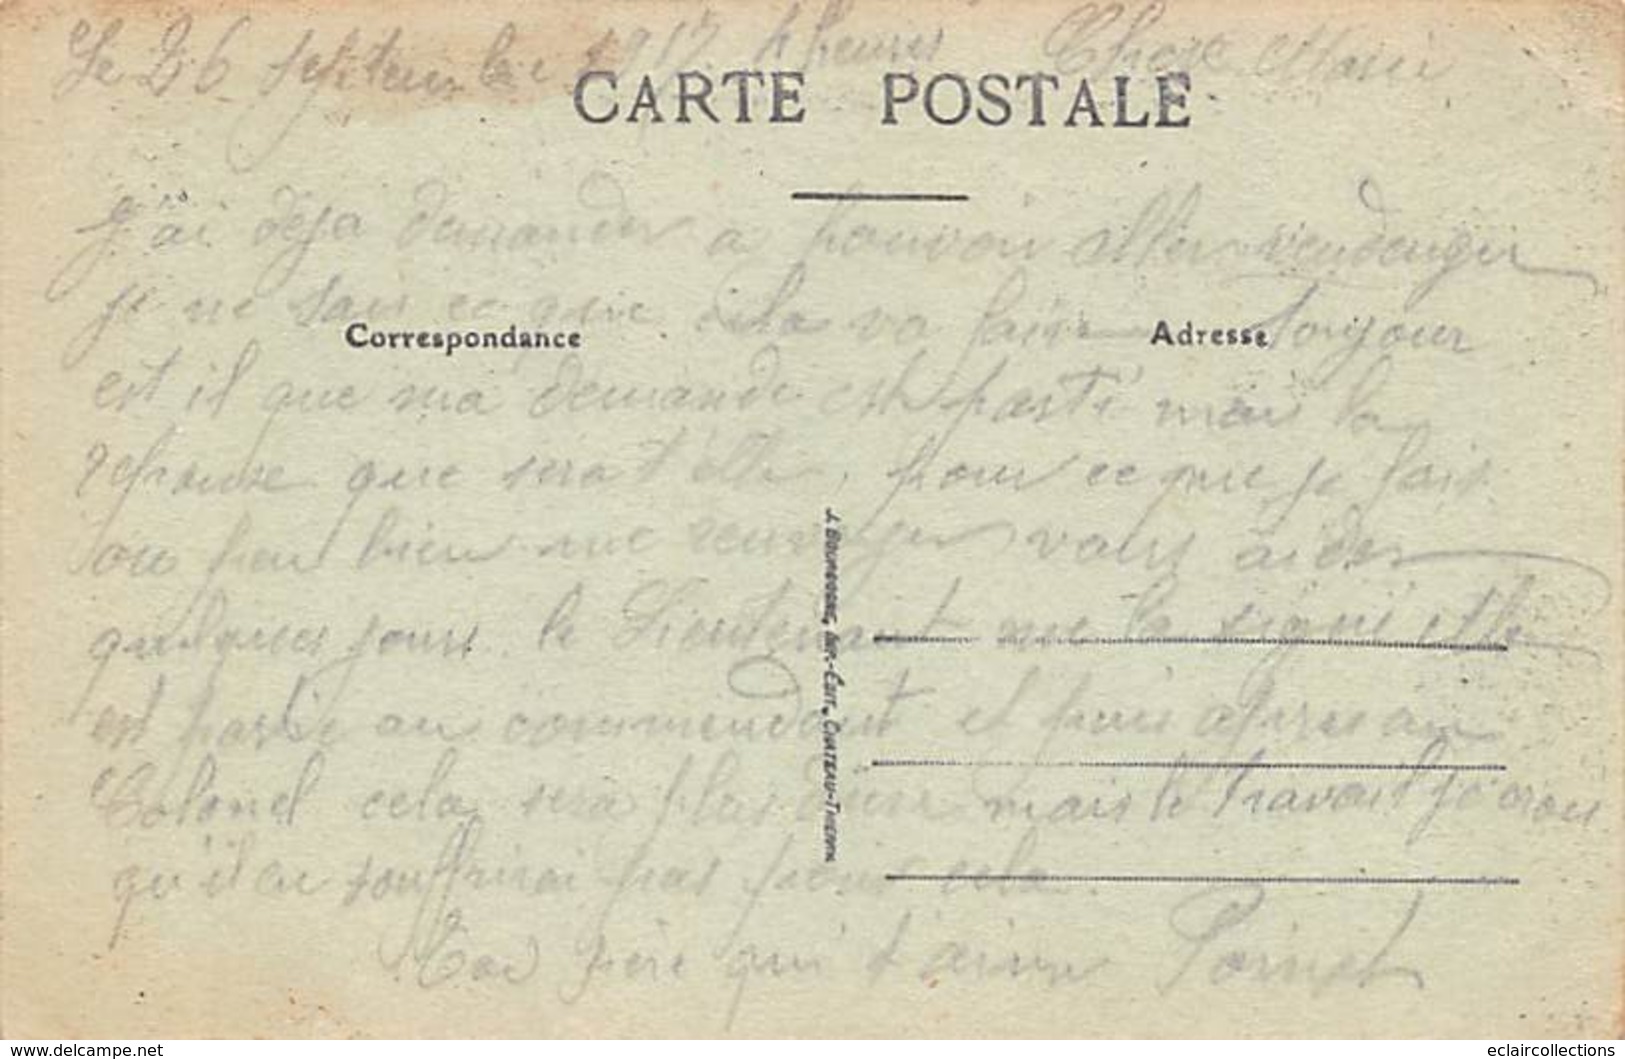 Le 26 septembre 1917 4 heures Chere Marie
CARTE POSTALE
J'ai deja demander a pouvoir aller vendenger
je ne sais ce que cela va faire Toujour
Correspondance
Adresse
est il que ma demande est parti mais la
reponse que sera t'elle, pour ce que je fais
on peu bien me renvoyer vous aider
quelques jours. le Lieutenant me la signé elle
est partie au commendant et puis apres au
Colonel cela sera plus dure mais le travail je crois
qu'il en souffrirai pas pour cela.
Ton frère qui t'aime Poinsot
J. BOURGOGNE, IMP.-ÉDIT. CHATEAU-THIERRY
www.delcampe.net
eclaircollections